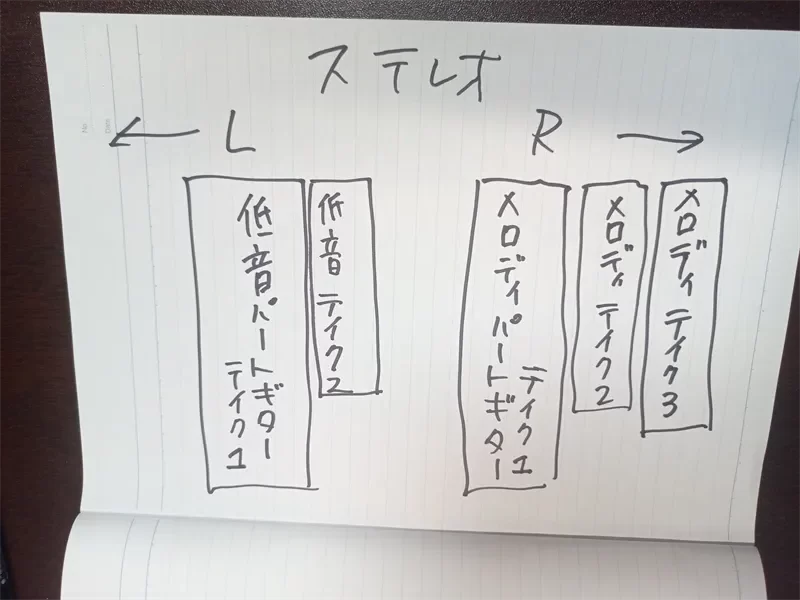 ステレオ
← L
R →
低音パートギター
テイク1
低音 テイク2
メロディパートギター
テイク1
メロディ テイク2
メロディ テイク3